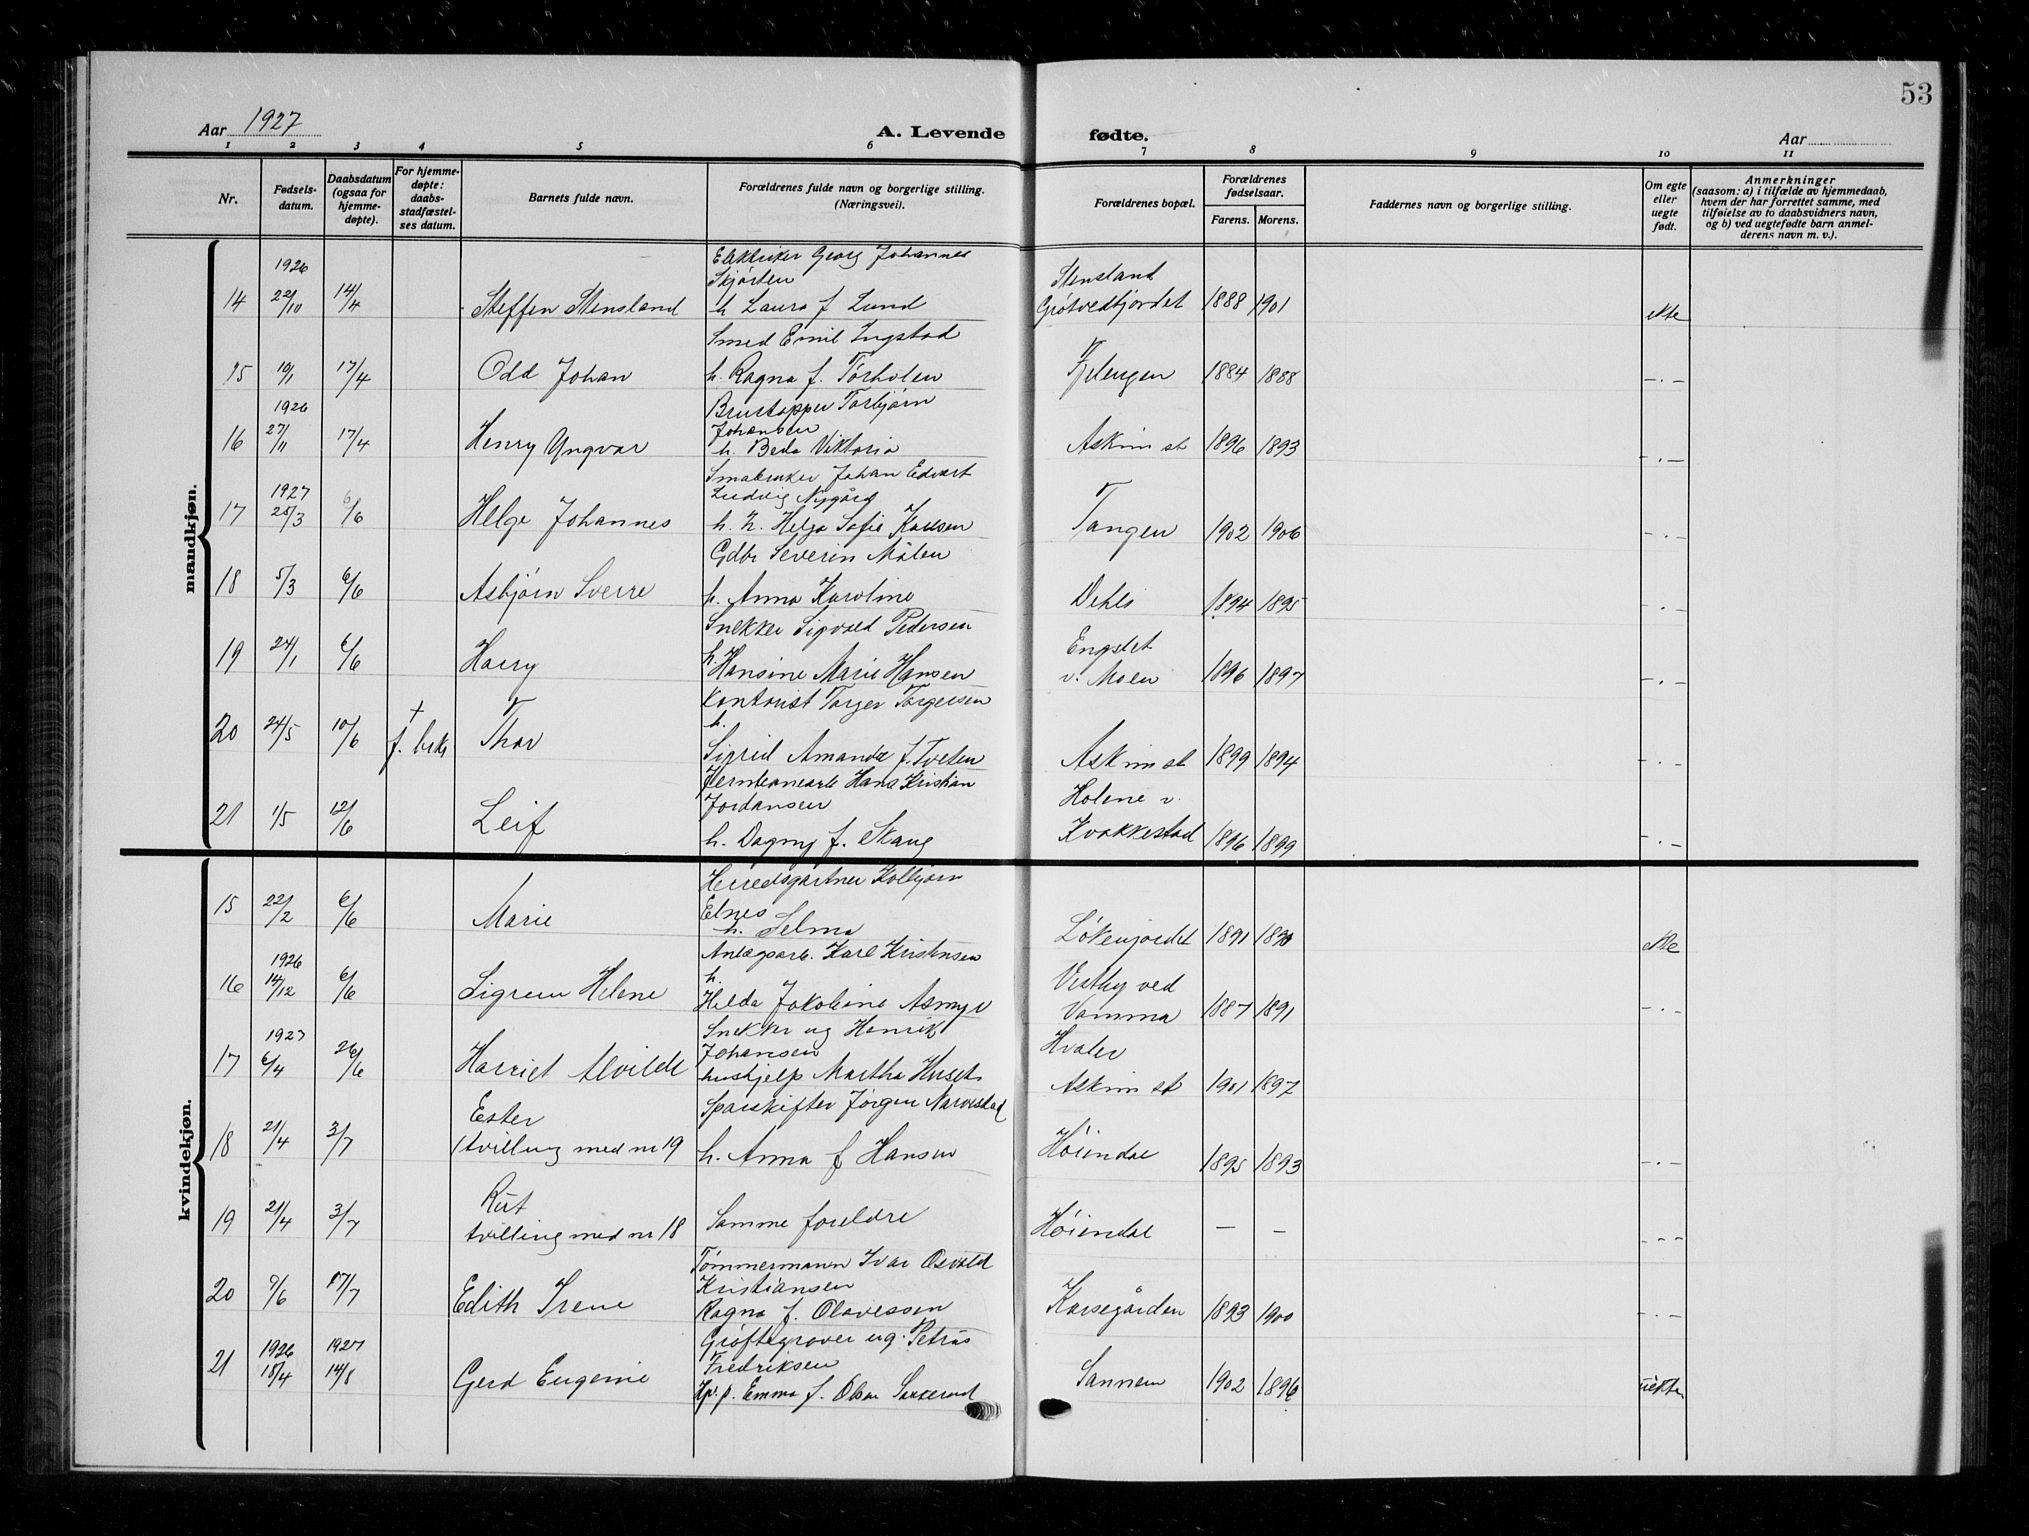 53
Aar 1927
A. Levende
fødte.
Aar
1 2 3 4 5 6 7 8 9 10 11
Nr.
Fødsels-
datum.
Daabsdatum
(ogsaa for
hjemme-
døpte).
For hjemme-
døpte:
daabs-
stadfæstel-
ses datum.
Barnets fulde navn.
Forældrenes fulde navn og borgerlige stilling.
(Næringsvei).
Forældrenes bopæl.
Forældrenes
fødselsaar.
Farens. Morens.
Faddernes navn og borgerlige stilling.
Om egte
eller
uegte
født.
Anmerkninger
(saasom: a) i tilfælde av hjemmedaab,
hvem der har forrettet samme, med
tilføielse av to daabsvidners navn,
og b) ved uegtefødte barn anmel-
derens navn m. v.).
mandkjøn.
1926
Elektriker Georg Johannes
Skjørten
Stensland
14 22/10 14/4 Steffen Stensland h Laura f Lund Grøtvedtjordet 1888 1901 ekte
Smed Emil Ingstad
15 10/1 17/4 Odd Johan h. Ragna f. Torholen Fjelengen 1884 1888 -.-
1926
Torbjørn
Johansen
16 27/11 17/4 Henry Yngvar h. Beda Viktoria Askim st 1896 1893 -.-
1927
Småbruker Johan Edvart
Ludvig Nygård
17 28/3 6/6 Helge Johannes h. Helga Sofie Tangen 1902 1906 -.-
Gdbr Severin Målen
18 5/3 6/6 Asbjørn Sverre h. Anna Karoline Dehli 1894 1895 -.-
Snekker Sigvald Pedersen
19 24/1 6/6 Harry h. Hansine Marie Hansen v. Moen 1896 1897 -.-
Kontorist Torger Torgersen
h.
20 24/5 10/6 + Thor Sigrid Amanda f. Tveten Askim st 1899 1894 -.-
Hans Kristian
Jordansen
Holene v.
21 1/5 12/6 Leif h. Dagny f. Skaug Kvakkestad 1896 1899 -.-
kvindekjøn.
Herredsgartner Kolbjørn
Elnes
15 22/2 6/6 Marie h. Selma Løkenjordet 1891 1890 ekte
1926
Anlegsarb. Karl Kristensen
h.
Vestby ved
16 14/12 6/6 Sigrun Helene Helda Jakobine Asmyr Vamma 1887 1891 -.-
1927
Snekker ug Henrik
Johansen
Hvaler
17 6/4 26/6 Harriet Alvilde hushjelp Martha Huseth Askim st 1901 1897
Ester
Sporskifter Jørgen Narvestad
18 21/4 3/7 tvilling med nr 19 h. Anna f Hansen Høiendal 1895 1893 -.-
Rut
19 21/4 3/7 tvilling med nr 18 Samme foreldre Høiendal - - - - -
Tømmermann Ivar Osvald
Kristiansen
20 9/6 17/7 Edith Irene Ragna f. Olavessen Karsegården 1893 1900 -.-
Grøftegraver ug. Petrus
1926 1927
Fredriksen
21 18/4 14/8 Gerd Eugenie Emma f. Olsen Sannem 1902 1896 uekte